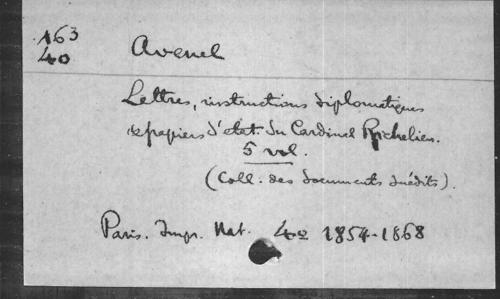 163
40
Avenel
Lettres, instructions diplomatiques
& papiers d'état du Cardinal Richelieu.
5 vol.
(Coll. des documents inédits).
Paris. Impr. Nat. 4º 1854-1868